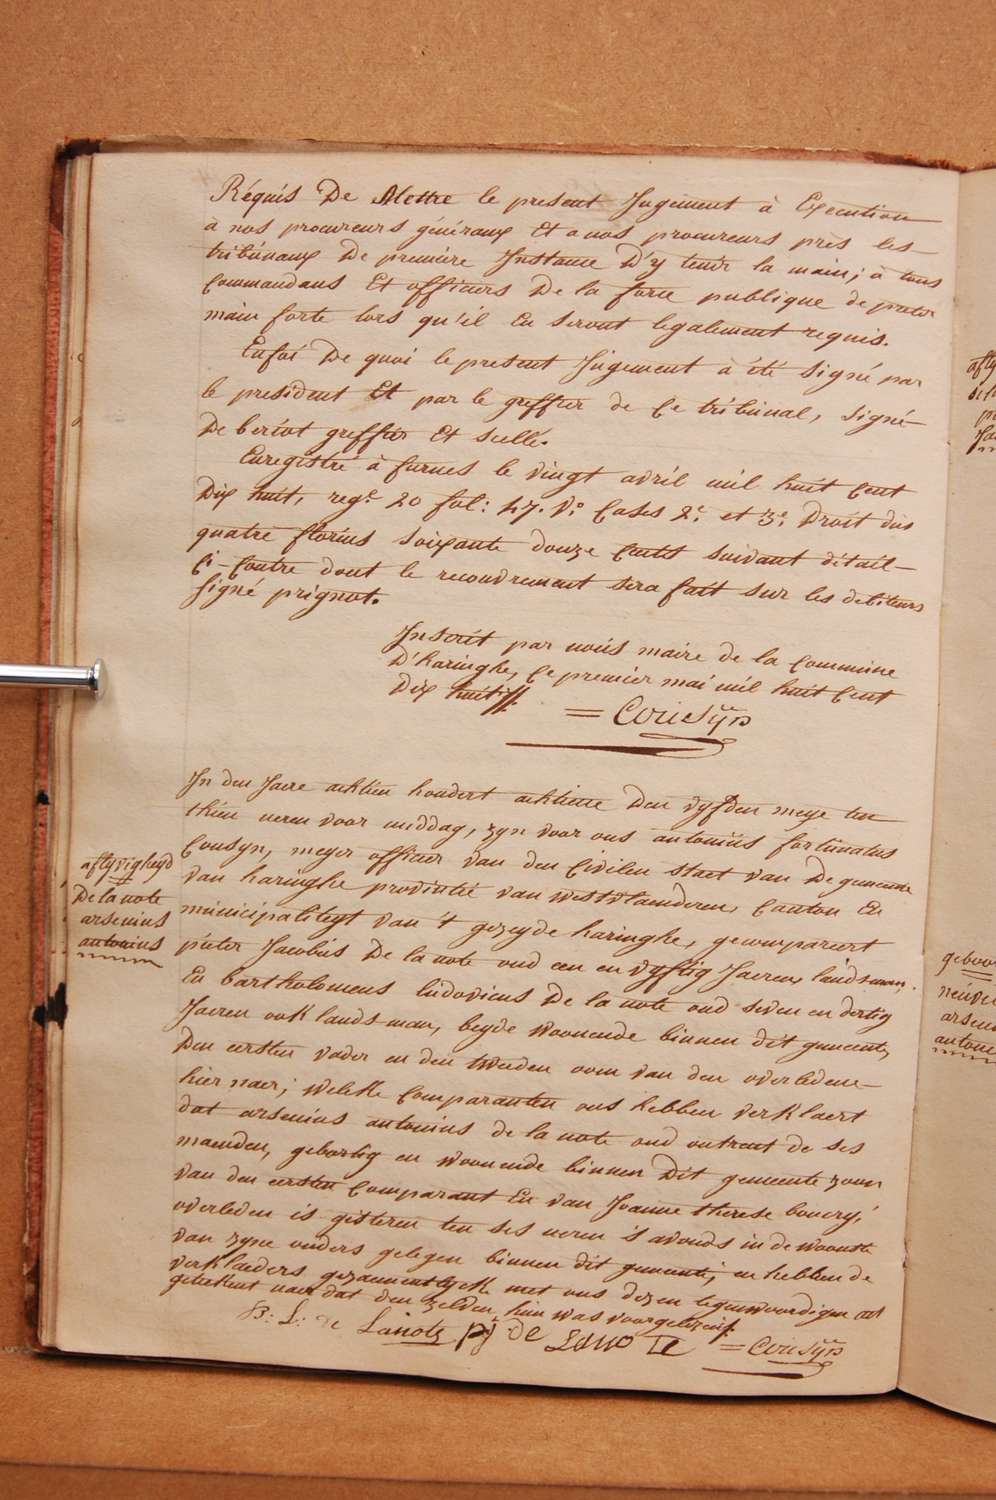 Réquis De Mettre le present Jugement à Execution
à nos procureurs généraux Et a nos procureurs près les
tribúnaux De première Instance D'y tenir la main; à tous
Commandans Et officiers De la force publique de preter
main forte lors qu'il En seront legalement requis.
Enfoi De quoi le present Jugement à été signé par
le president Et par le greffier de Ce tribúnal, signé
De beriot greffier Et scellé.
Enregistré à furnes le vingt avril mil huit Cent
Dix huit, reg.e 20 fol: 47. V.o Cases 2.e et 3.e Droit dus
quatre florins soixante douze Cents suivant détail
Ci-Contre dont le recouvrement sera fait sur les debiteurs
signé prignot.
Inscrit par noús maire de la Commune
D'haringhe, Ce premier mai mil huit Cent
Dix huit
= Cousyn
In den Jaere achtien hondert achtiene Den vyfden meye ten
thien ueren voor middag, zyn voor ons antonius fortunatus
Cousyn, meyer officier van den Civilen staet van De gemeente
van haringhe provintie van westvlaenderen, Canton En
múnicipalityt van 't gezeyde haringhe, gecompareert
pieter Jacobús De la note oud een en vyftig Jaeren landsman,
En bartholomeus ludovicus De la note oud seven en dertig
Jaeren ook landsman, beyde woonende binnen dit gemeente,
Den eersten vader en den tweeden oom van den overledene
hier naer; welke Comparanten ons hebben verklaert
dat arsenius antonius de la note oud ontrent de ses
maenden, gebortig en woonende binnen Dit gemeente zoon
van den eersten Comparant En van Joanne therese bouery,
overleden is gisteren ten ses ueren s'avonds in de woonste
van zyne ouders gelegen binnen dit gemeente; en hebben de
verklaerders gezaementlyk met ons dezen tegenwoordigen act
geteekent naer dat den zelden hun was voorgelezen
B: L: de Lanote pj de Lano te = Cousyn
aflyvigheyd
De la note
arsenius
antonius
afly
geboo
arseni
antoni